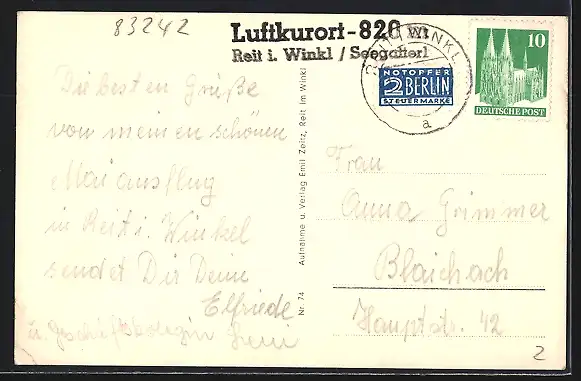 83242
Luftkurort-820 m
Reit i. Winkl / Seegatterl
REIT i. WINKL
a
NOTOPFER
2 BERLIN
STEUERMARKE
10
DEUTSCHE POST
Die besten Grüße
von meinen schönen
Maiausflug
in Reit i. Winkel
sendet Dir Deine
Elfriede
u. Geschäftskollegin
Aufnahme u. Verlag Emil Zeitz, Reit im Winkl
Nr. 74
Frau
Anna Grimmer
Blaichach
Hauptstr. 42
2